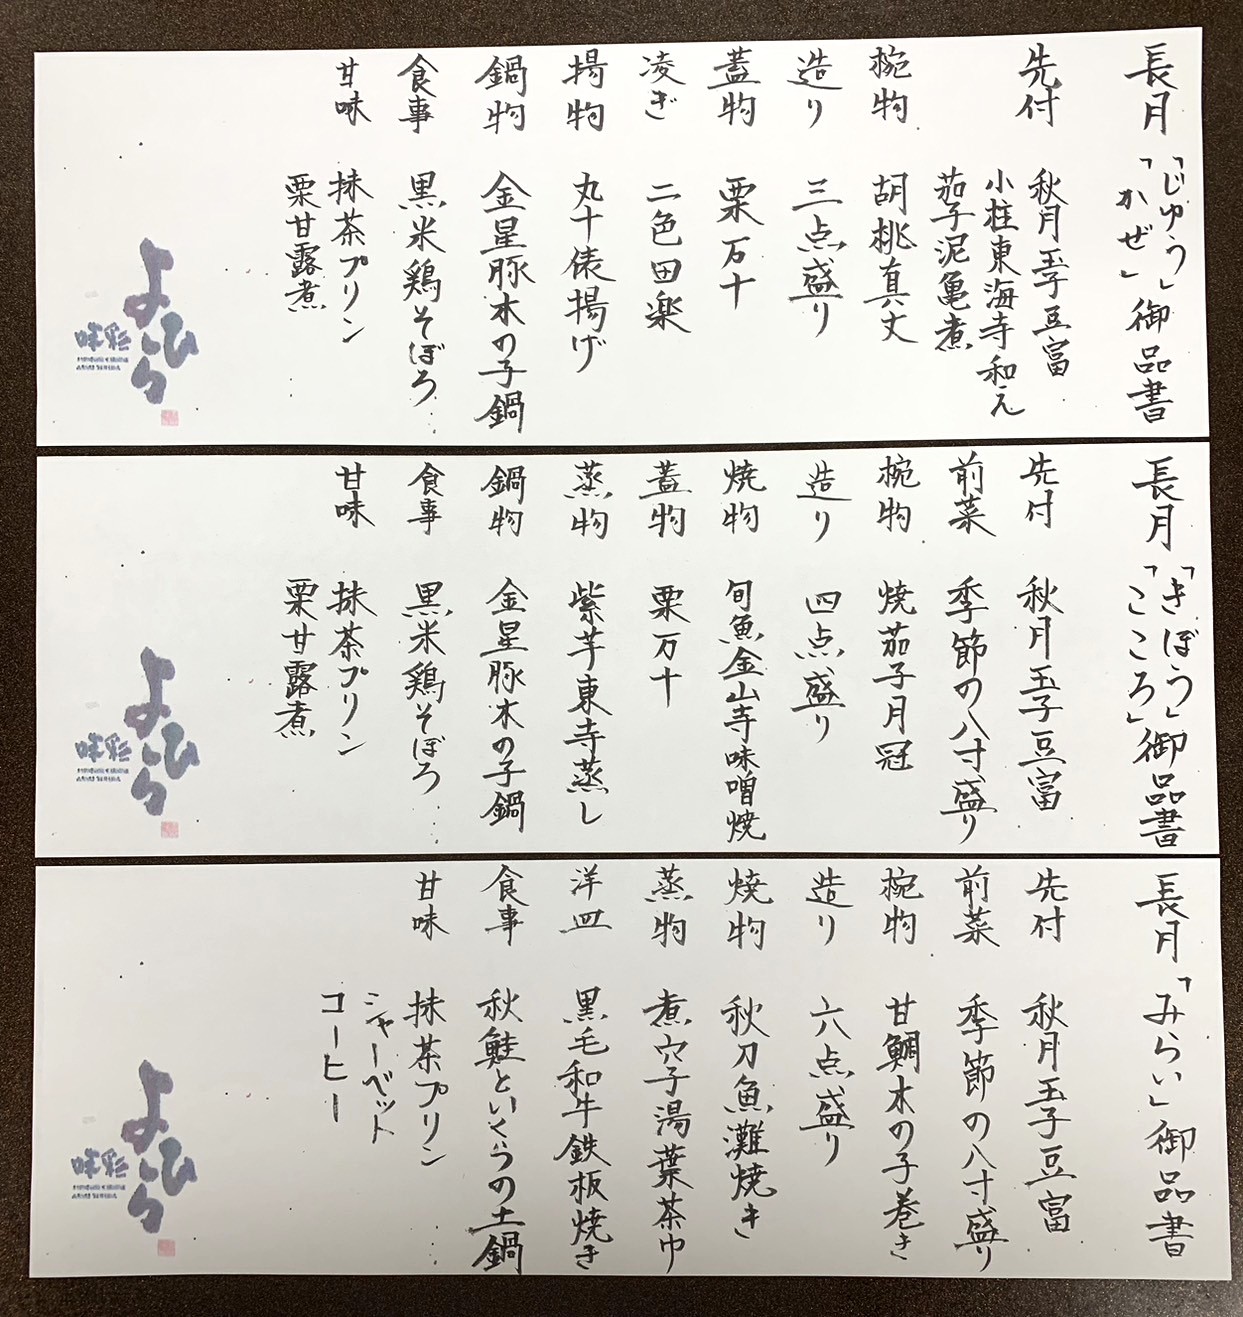 長月「じゆう」「かぜ」御品書
先付 秋月玉子豆富
小柱東海寺和え
茄子泥亀煮
椀物 胡桃真丈
造り 三点盛り
蓋物 栗万十
凌ぎ 二色田楽
揚物 丸十俵揚げ
鍋物 金星豚木の子鍋
食事 黒米鶏そぼろ
甘味 抹茶プリン
栗甘露煮
よひら
長月「きぼう」「こころ」御品書
先付 秋月玉子豆富
前菜 季節の八寸盛り
椀物 焼茄子月冠
造り 四点盛り
焼物 旬魚金山寺味噌焼
蓋物 栗万十
蒸物 紫芋東寺蒸し
鍋物 金星豚木の子鍋
食事 黒米鶏そぼろ
甘味 抹茶プリン
栗甘露煮
よひら
長月「みらい」御品書
先付 秋月玉子豆富
前菜 季節の八寸盛り
椀物 甘鯛木の子巻き
造り 六点盛り
焼物 秋刀魚灘焼き
蒸物 煮穴子湯葉茶巾
洋皿 黒毛和牛鉄板焼き
食事 秋鮭といくらの土鍋
甘味 抹茶プリン
シャーベット
コーヒー
よひら